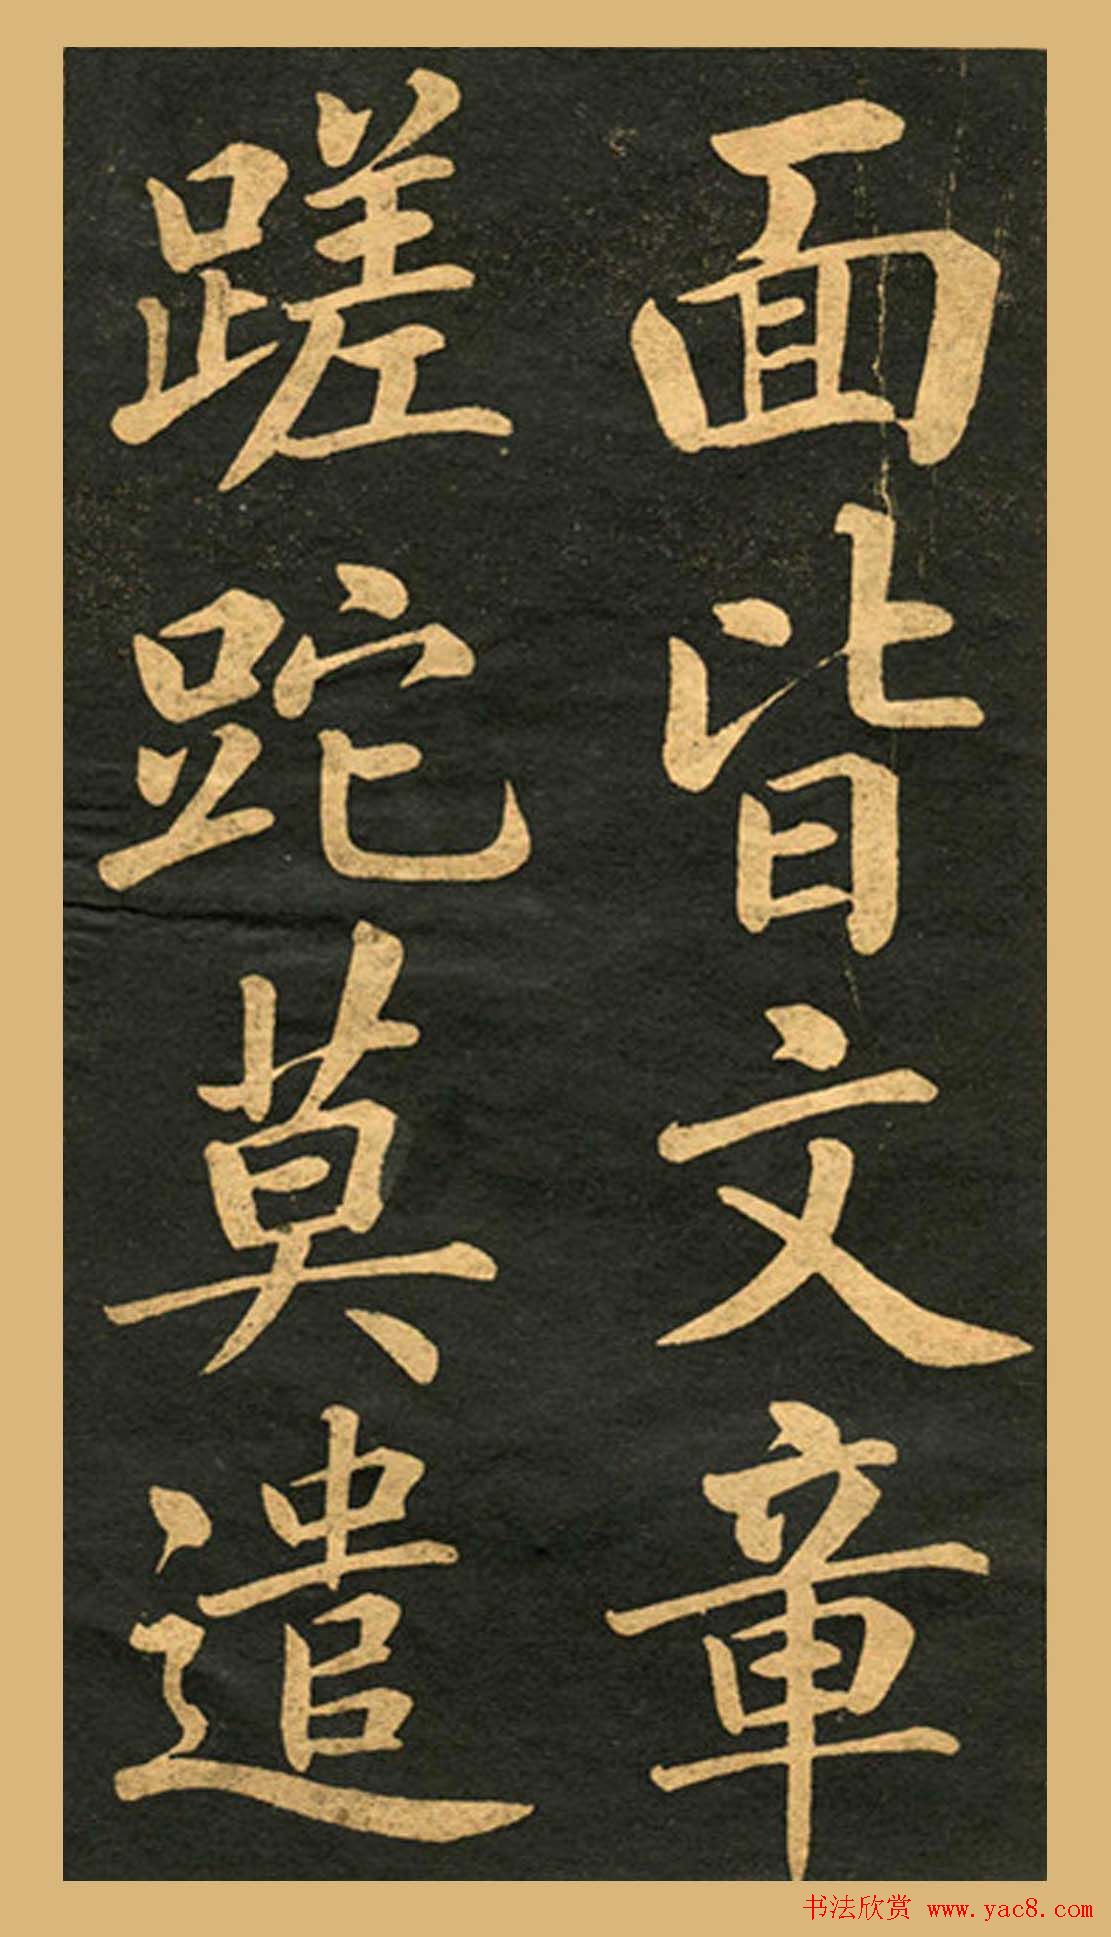 面皆文章
蹉跎莫遣
书法欣赏 www.yac8.com